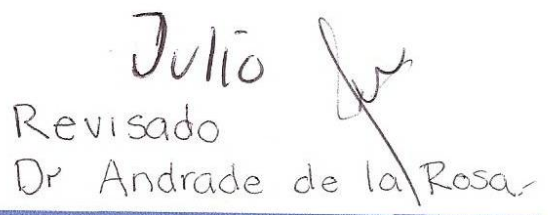 Julio
Revisado
Dr Andrade de la Rosa